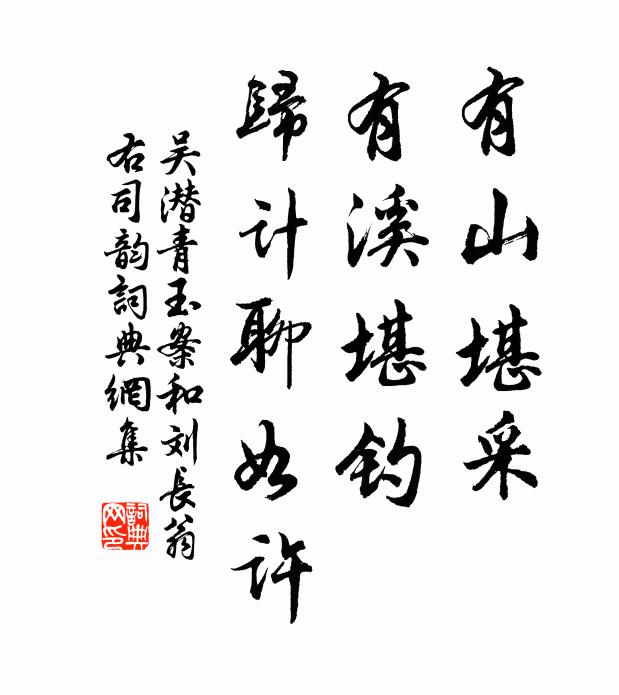 有山堪采
有溪堪钓
歸计聊如许
吴潜青玉案和刘長翁
右司韵詞典網集
詞典
网印